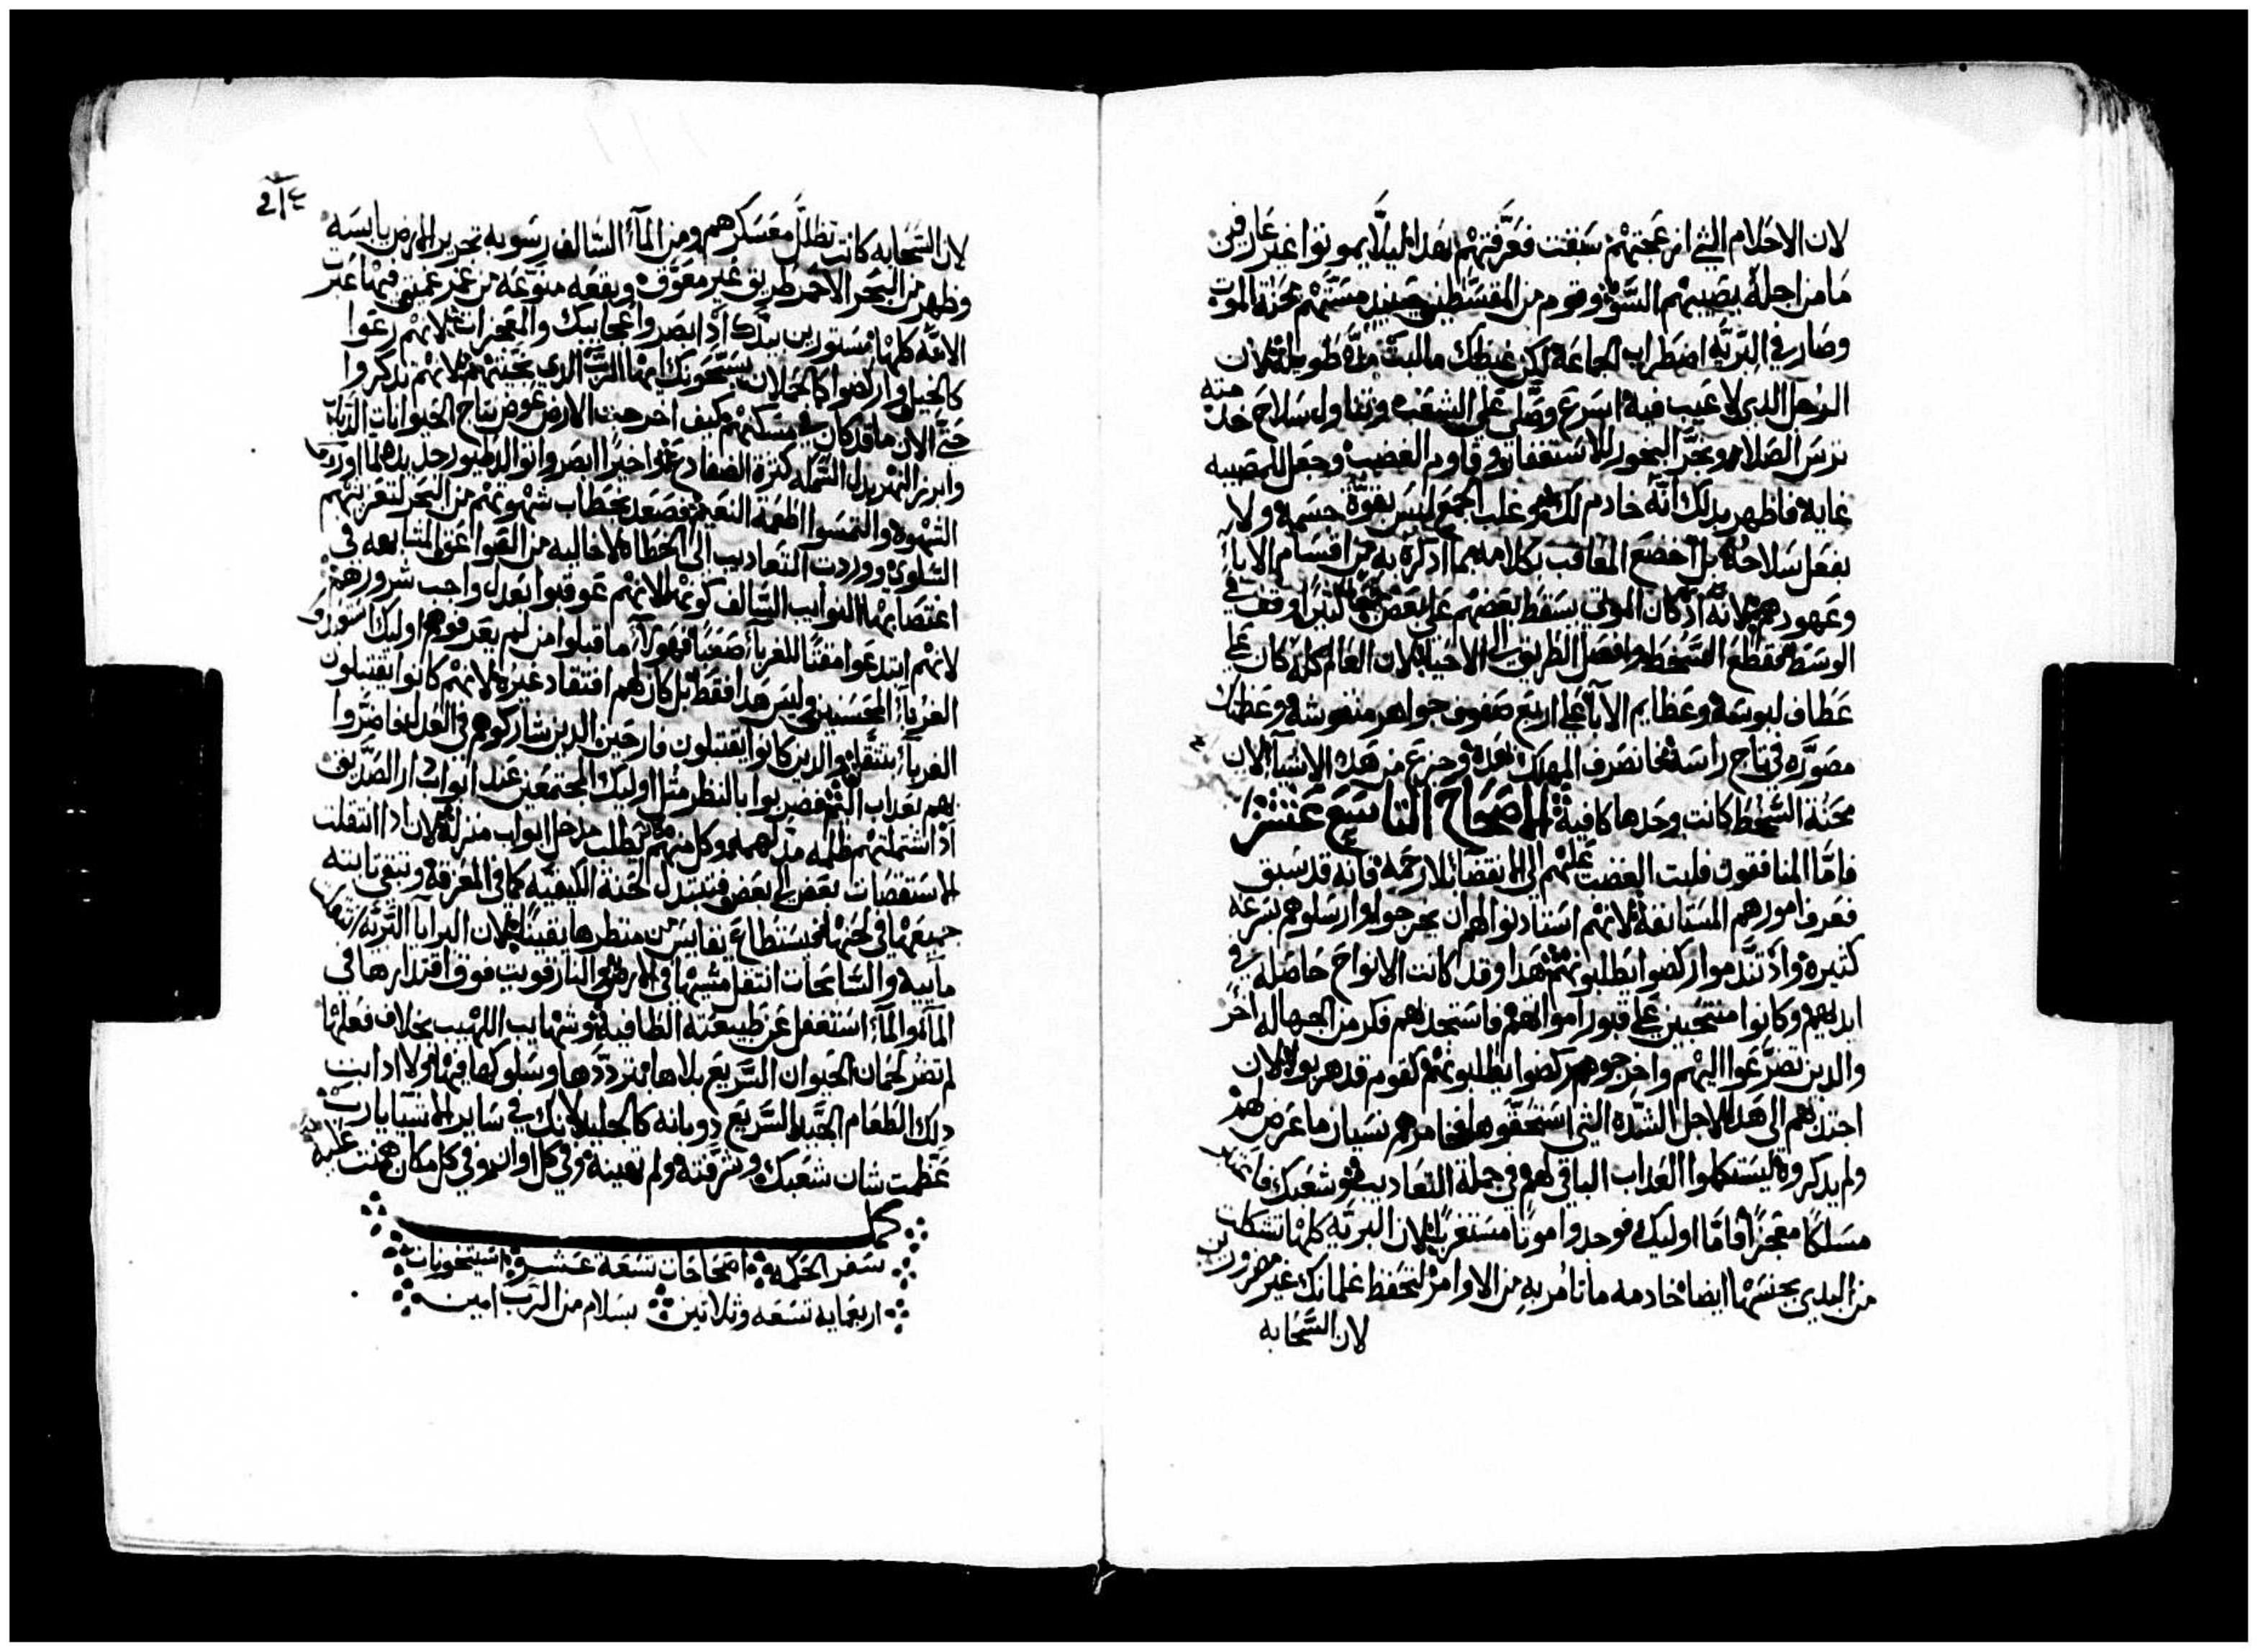 لان الاحلام التي ازعجتهم سبقت فعرفتهم بهدا ليلا يموتوا غير عارفين
ما من اجله يصيبهم السو وقوم من المقسطين حينيد مستهم محنة الموت
وصار في البريه اضطراب الجماعة لكن غيظك ما لبث مده طويله لان
الرجل الدي لا عيب فيه اسرع وصلى على الشعب وتناول سلاح خدمته
ترس الصلاه وبخر البخور للاستغفار وقاوم الغضب وجعل للمصيبه
غايه فاظهر بدلك انه خادم لك هو غلب الجمع ليس بقوة جسمه ولا
بفعل سلاحه بل اخضع المعاقب بكلامه بما ادكره به من اقسام الابا
وعهودهم لانه اد كان الموتى يسقط بعضهم على بعض وقف في
الوسط فقطع السخط وافصل الطريق الى الاحيا لان العالم كله كان على
عطاف لبوسه وعظايم الابا على اربع صفوف جواهر منقوشه وعظمتك
مصوره في تاج راسه فانصرف المهلك بهده وجزع من هده الاشيا لان
محنة السخط كانت وحدها كافية الاصحاح التاسع عشر
فاما المنافقون فلبت الغضب عليهم الى الانقضا بلا رحمة فانه قد سبق
فعرف امورهم المستانفة لانهم استادنوا لهم ان يخرجوا وارسلوهم بسرعه
كتيرة واد تندموا ركضوا يطلبونهم هدا وقد كانت الانواح حاصله في
ايديهم وكانوا منتحبين على قبور امواتهم فاستجدلهم فكر من الجهاله اخر
والدين تضرعوا اليهم واخرجوهم ركضوا يطلبونهم كقوم قد هربوا لان
اجتدبهم الى هدا لاجل الشده التي استحقوها فخامرهم نسيان ما عرض لهم
ولم يدكروه ليستكملوا العداب الباقي لهم في جملة التعاديب وشعبك
مسلكا معجزا فاما اوليك فوجدوا موتا مستغربا لان البريه كلها تشكلت
من البدي بجنسها ايضا خادمه ما تامر به من الاوامر لتحفظ غلمانك غير مضرورين
لان السحابه
لان السحابه كانت تظلل معسكرهم ومن المآ السالف رسوبه تحرير الارض يابسه
وظهر من البحر الاحمر طريق غير معوق وبقعه من غمر عميق فيها عبرت
الامه كلها مستورين بيدك اد ابصروا عجايبك والمعجزات لانهم رعوا
كالخيل واركضوا كالحملان يسبحونك ايها الرب الدي نجيتهم لانهم تدكروا
حتى الان ما قد كان في مسكنهم كيف اخرجت الارض عوض نتاج الحيوانات الدباب
وابرز النهر بدل السمك كترة الضفادع واخيرا ابصروا توالد طيور جديده لما اوردتها
الشهوه والتمسوا اطعمة النعيم فصعد بخطاب شهوتهم من البحر لتعزيتهم
السلوى ووردت التعاديب الى الخطاه لا خاليه من الصواعق السابعه في
اعتصابها النوايب السالف كونها لانهم عوقبوا بعدل واجب شرورهم
لانهم ابتدعوا مقتا للغربآ صعبا فهولآ ما قبلوا من لم يعرفوهم اوليك
الغربآ المحسنين وليس هدا فقط بل كان لهم افتقاد غيره لانهم كانوا يقتبلون
الغربآ بتتقل والدين كانوا يقتبلون فارحين الدين شاركوهم في العدل فاضروا
بهم بعداب فضربوا بالنظر مثل اوليك المجتمعين عند ابواب دار الصديق
اد اشتملتهم ظلمه مدلهمه وكل منهم يطلب مدخل ابواب منزله لان ادا انتقلت
الاستقصات بعض الى بعض فتتبدل الكيفيه كما في المعزفة وتبقى تابته
جميعها في لحنها فيستطاع نقايس من منظرها يقينا لان البرايا البريه تنقلت
مآييه والسابحات انتقل مشيها في الارض والنار قويت فوق اقتدارها في
المآ والمآ استغفل عن طبيعته الطافيه وشهايب اللهيب بخلاف فعلها
لم تضر لحمان الحيوان السريع بلاها بترددها وسلوكها فيها ولا ادابت
دلك الطعام السريع دوبانه كالجليد لانك في ساير الاشيا يا رب
عظمت شان شعبك وشرفته ولم تهينه وفي كل اوان وفي كل مكان
كمل
سفر الحكمه اصحاحات تسعة عشر استيخونات
اربعمايه تسعه وثلاتين بسلام من الرب امين